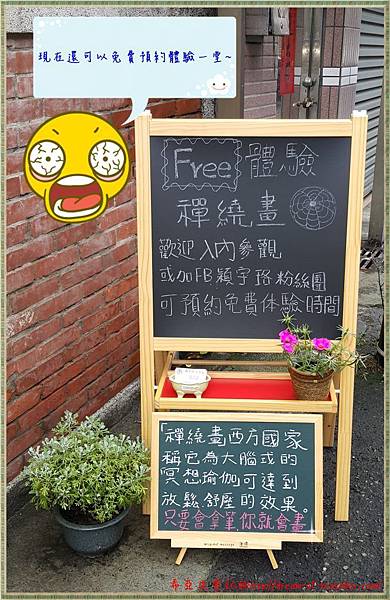 現在還可以免費預約體驗一堂~
Free 體驗
禪繞畫
歡迎入內參觀
或加FB穎宇珞粉絲團
可預約免費体驗時間
「禪繞畫西方國家
稱它為大腦或的
冥想瑜伽可達到
放鬆.舒壓的效果。
只要會拿筆你就會畫